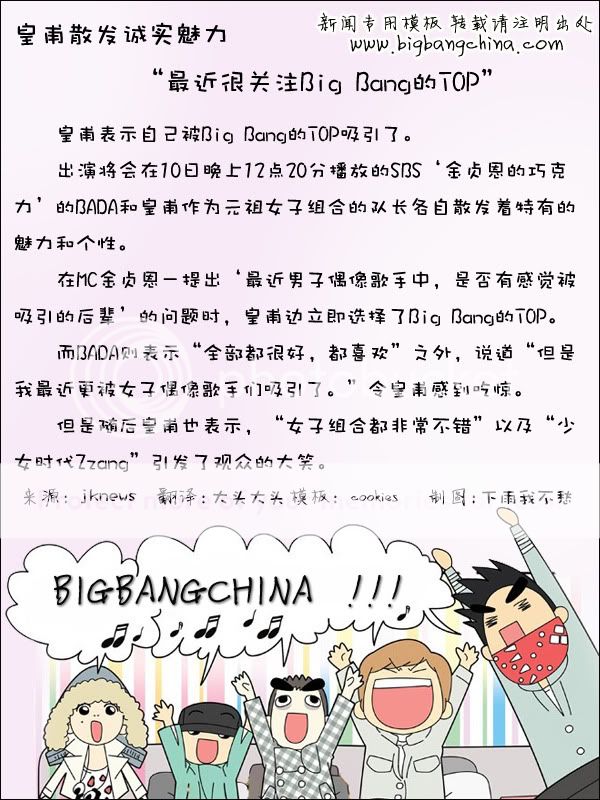 新闻专用模板 转载请注明出处
www.bigbangchina.com
皇甫散发诚实魅力
“最近很关注Big Bang的TOP”
皇甫表示自己被Big Bang的TOP吸引了。
出演将会在10日晚上12点20分播放的SBS‘金贞恩的巧克
力’的BADA和皇甫作为元祖女子组合的队长各自散发着特有的
魅力和个性。
在MC金贞恩一提出‘最近男子偶像歌手中，是否有感觉被
吸引的后辈’的问题时，皇甫边立即选择了Big Bang的TOP。
而BADA则表示“全部都很好，都喜欢”之外，说道“但是
我最近更被女子偶像歌手们吸引了。”令皇甫感到吃惊。
但是随后皇甫也表示，“女子组合都非常不错”以及“少
女时代Zzang”引发了观众的大笑。
来源：jknews 翻译：大头大头 模板：cookies 制图：下雨我不愁
BIGBANGCHINA !!!